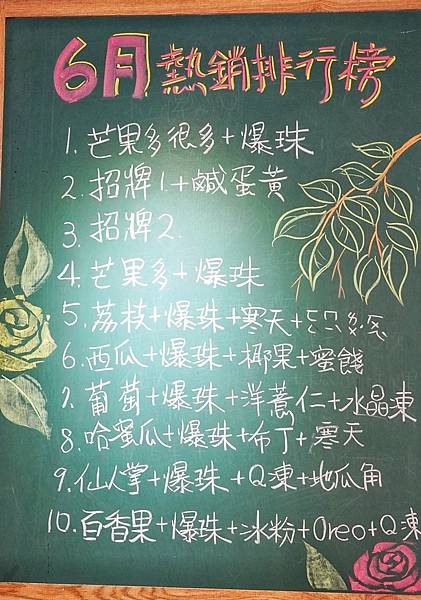 6月熱銷排行榜
1. 芒果多很多+爆珠
2. 招牌1.+鹹蛋黃
3. 招牌2.
4. 芒果多+爆珠
5. 荔枝+爆珠+寒天+
6. 西瓜+爆珠+椰果+蜜餞
7. 葡萄+爆珠+洋薏仁+水晶凍
8. 哈蜜瓜+爆珠+布丁+寒天
9. 仙人掌+爆珠+Q凍+地瓜角
10. 百香果+爆珠+冰粉+Oreo+Q凍